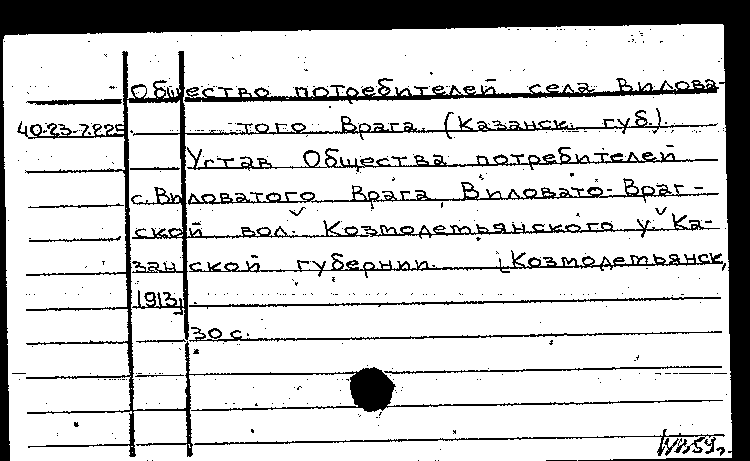 Общество потребителей села Вилова-
40-23-7.225 того Врага (Казанск. губ.).
Устав Общества потребителей
с. Виловатого Врага, Виловато-Враг-
ской вол. Козмодемьянского у. Ка-
занской губернии. [Козмодемьянск,
1913].
30 с.